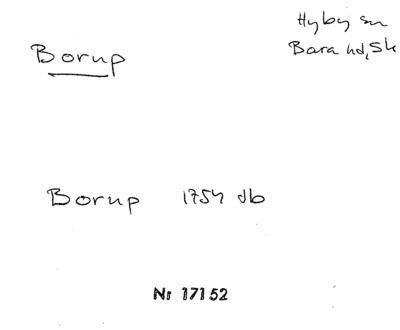 Hyby sn
Borup
Bara hd, Sk
Borup 1754 db
Nr 17152